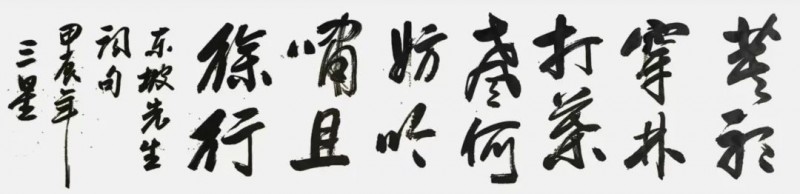 莫聽
穿林
打葉
聲何
妨吟
嘯且
徐行
东坡先生
词句
甲辰年
三星